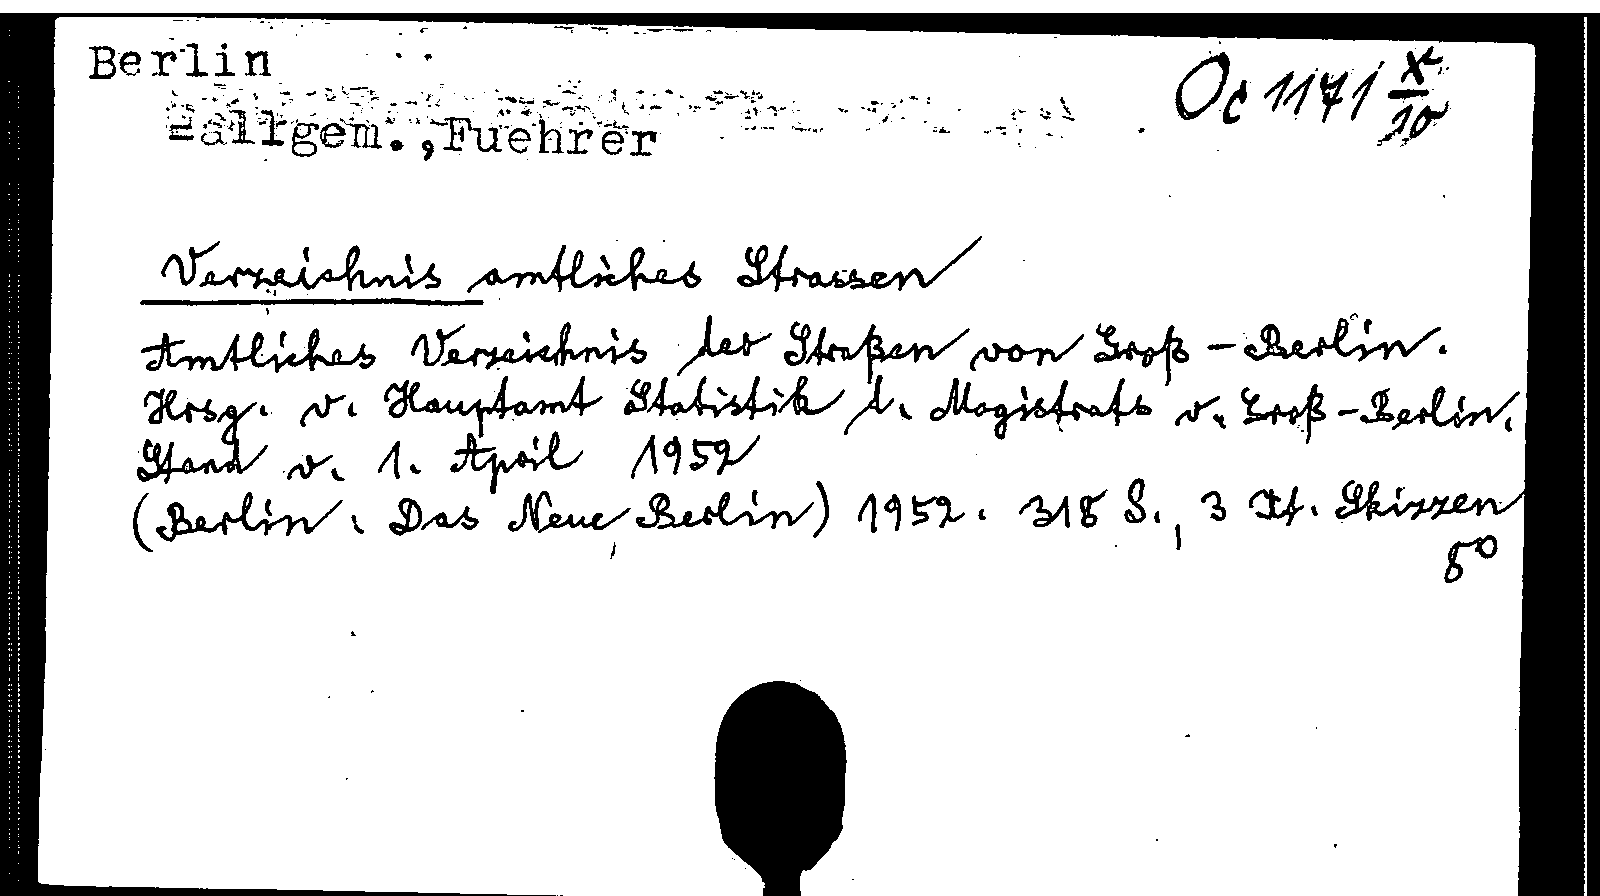 Berlin
Oc 1171 x/10
=allgem.,Fuehrer
Verzeichnis amtliches Strassen
Amtliches Verzeichnis der Straßen von Groß-Berlin.
Hrsg. v. Hauptamt Statistik d. Magistrats v. Groß-Berlin.
Stand v. 1. April 1952
(Berlin: Das Neue Berlin) 1952. 318 S., 3 Kt. Skizzen
8°